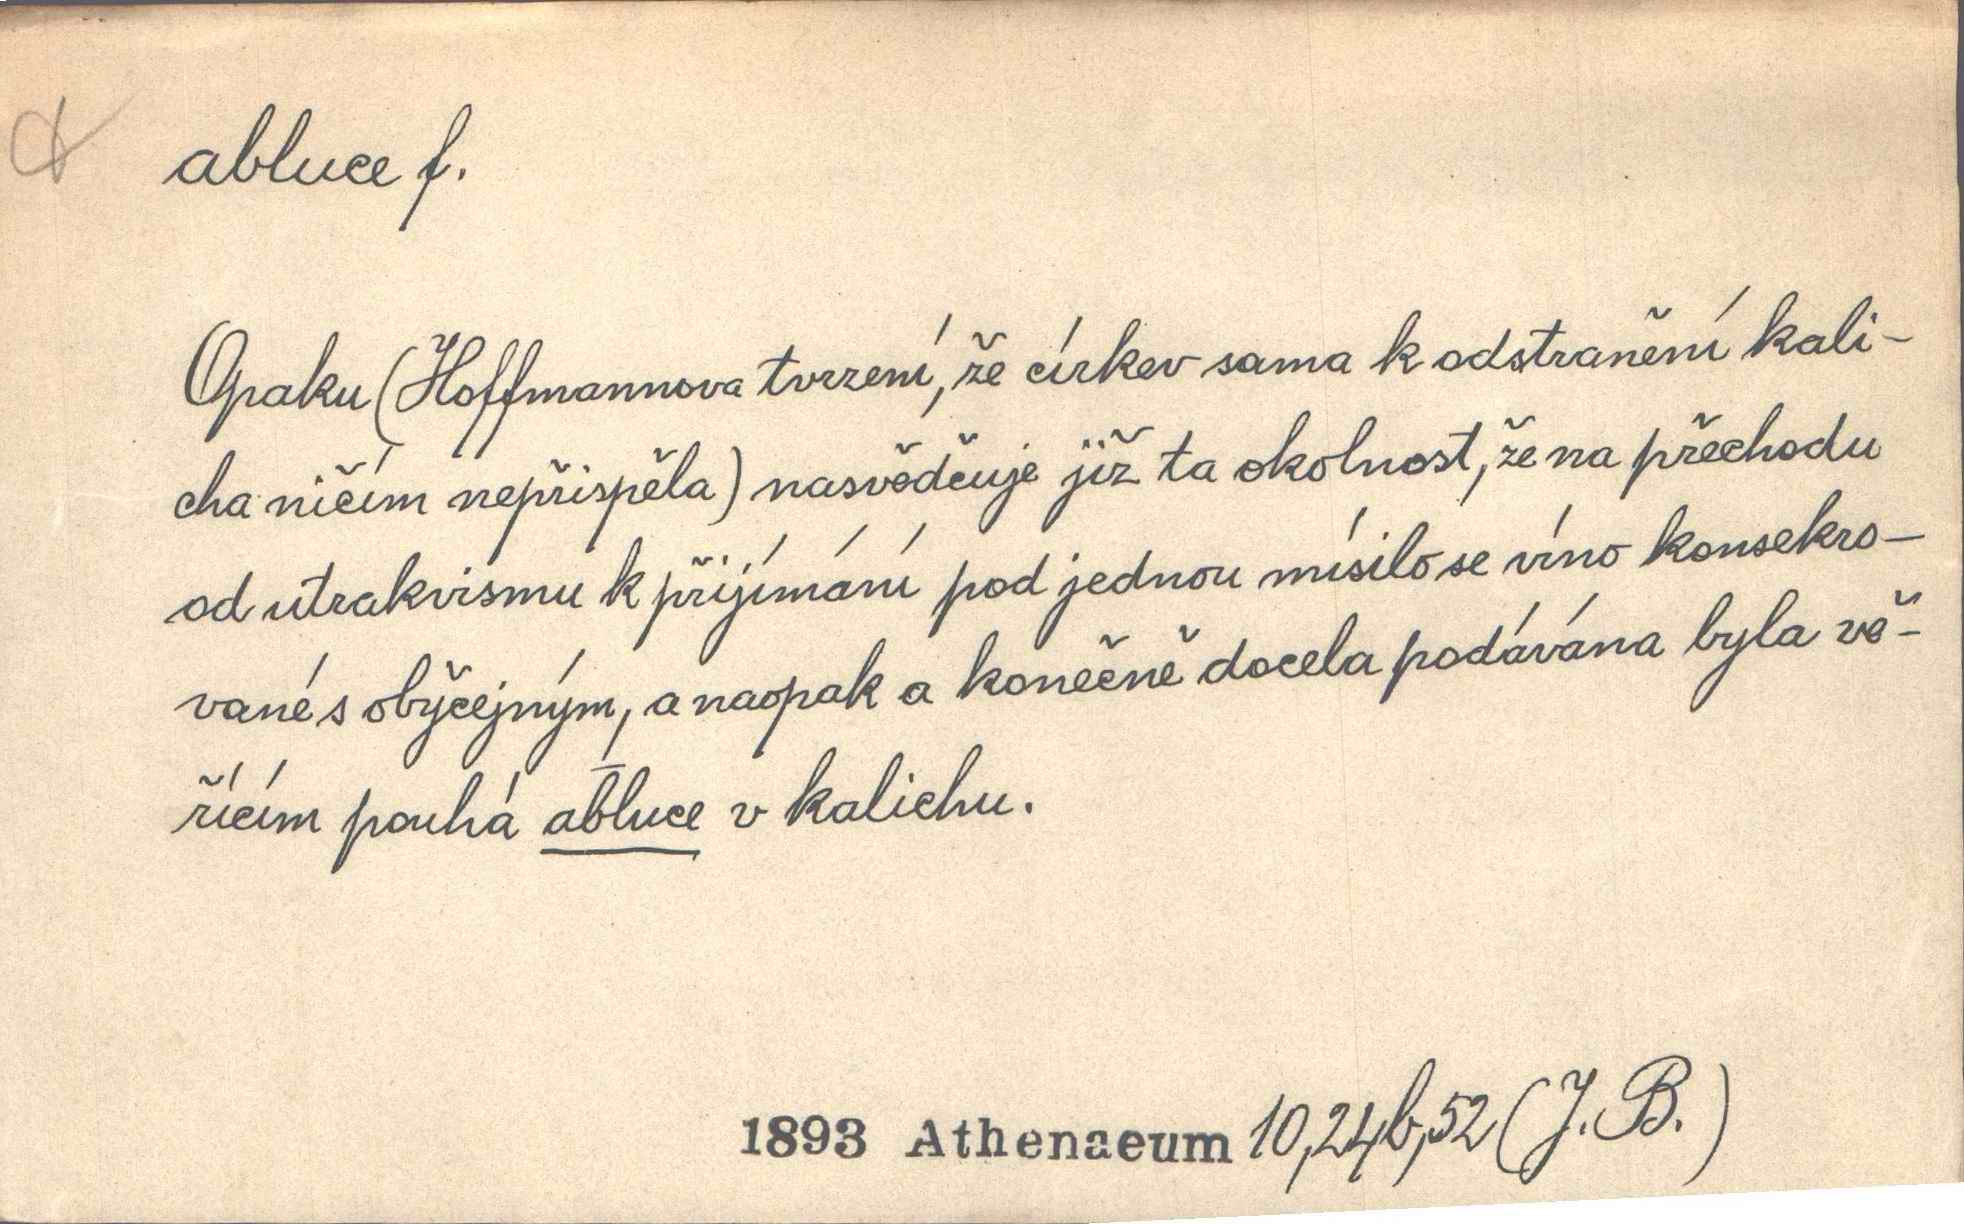 abluce f.
Opaku (Hoffmannova tvrzení, že církev sama k odstranění kali-
cha ničím nepřispěla) nasvědčuje již ta okolnost, že na přechodu
od utrakvismu k přijímání pod jednou mísilo se víno konsekro-
vané s obyčejným, a naopak a konečně docela podávána byla vě-
řícím pouhá abluce v kalichu.
1893 Athenaeum 10,24b,52 (J. B.)